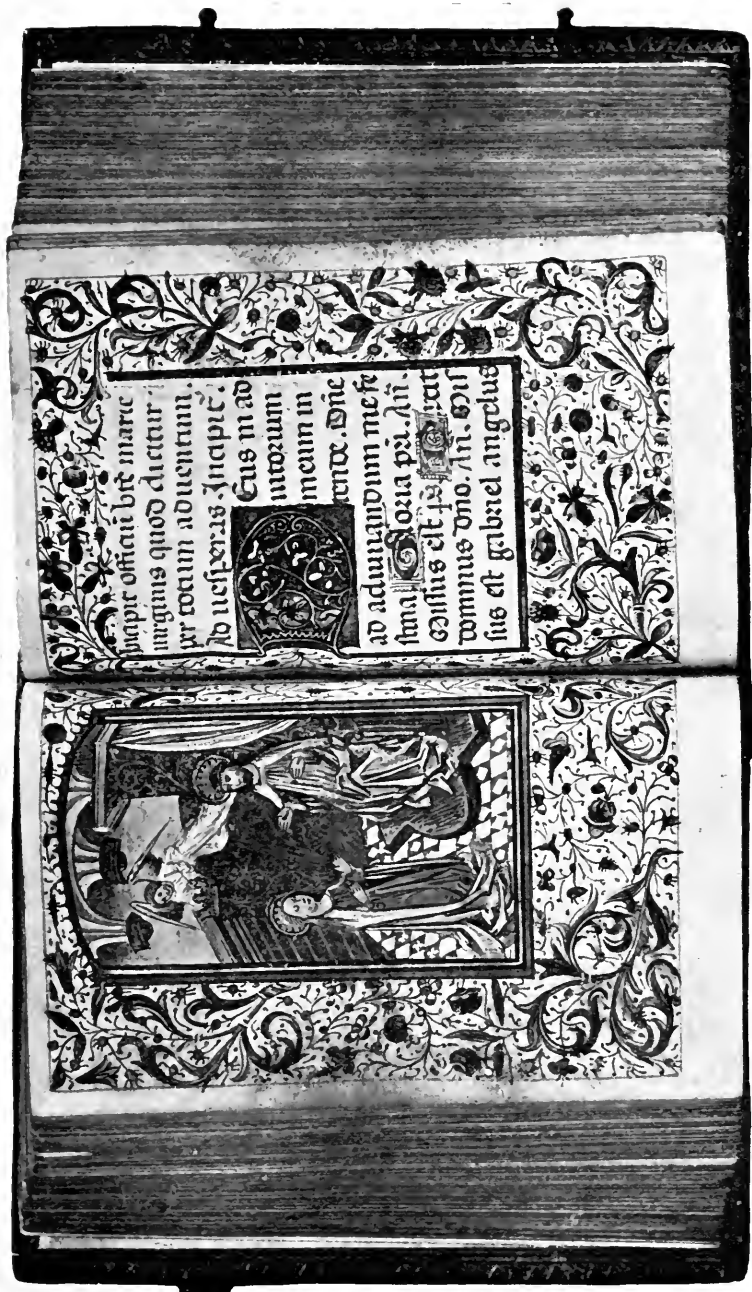 Incipit officiū bte marie
uirginis quod dicitur
per totum aduentum.
Ad uesperas Incipit̄.
Deus in ad
iutorium
meum in
tende. Dn̄e
ad adiuuandum me fe
stina Gloria pr̄i. An̄.
Missus est ps
dominus dn̄o. An̄. Mis
sus est gabriel angelus